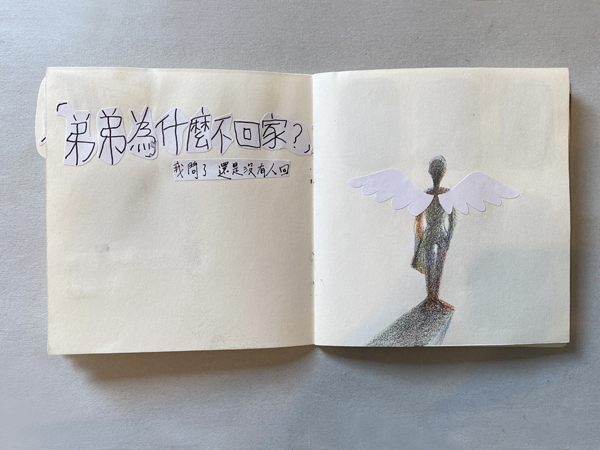 「弟弟為什麼不回家?」
我問了 還是沒有人回